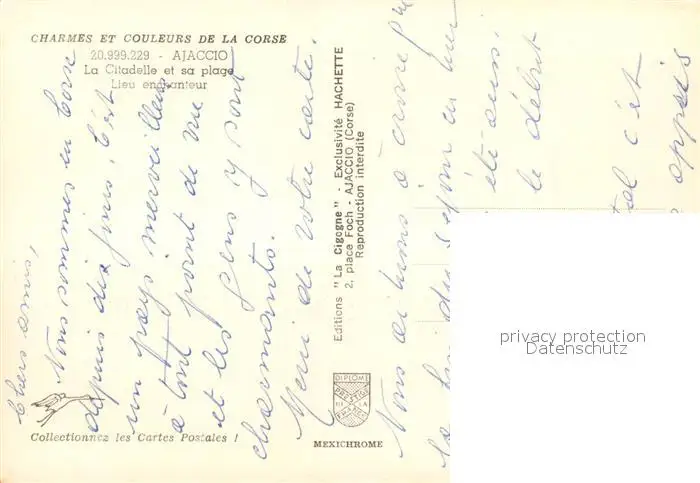 CHARMES ET COULEURS DE LA CORSE
20.999.229 - AJACCIO
La Citadelle et sa plage
Lieu enchanteur
Chers amis,
Nous sommes en Corse
depuis dix jours. C'est
un pays merveilleux
à tout point de vue
et les gens y sont
charmants.
Merci de votre carte.
Editions "La Cigogne" - Exclusivité HACHETTE
2, place Foch - AJACCIO (Corse)
Reproduction interdite
DIPLOME
PRESTIGE
DE LA
FRANCE
MEXICHROME
Collectionnez les Cartes Postales !
Nous
la fin du séjour en mer
été aussi
le début
c'est
après
privacy protection
Datenschutz